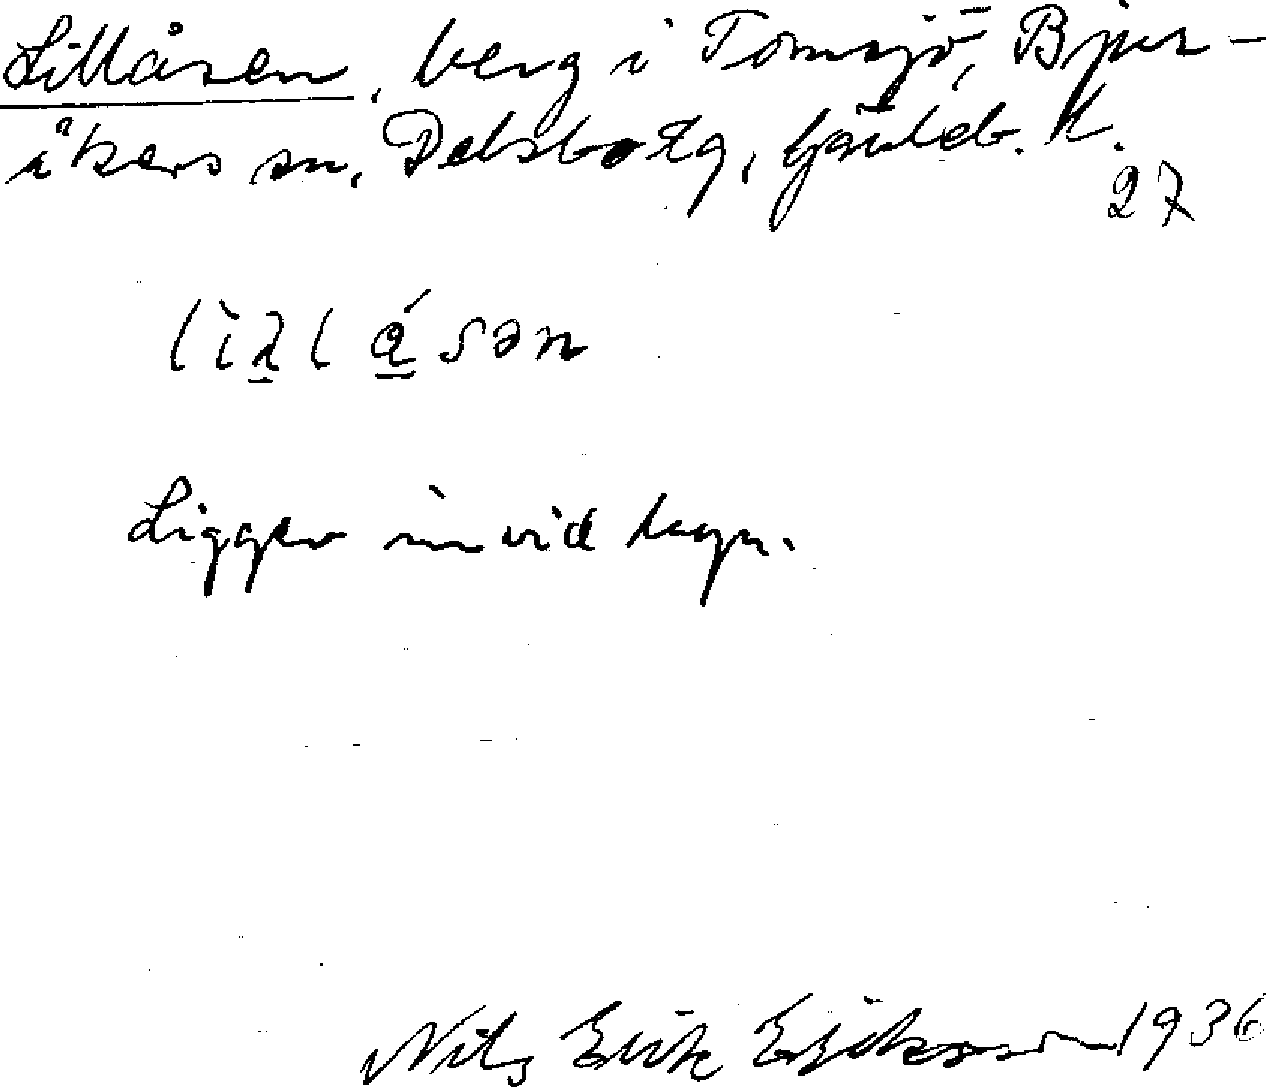 Lillåsen, berg i Tomsjö, Bjur-
åkers sn, Delsbo tg, Gävleb. l.
27
Ligger invid byn.
Nils Erik Eriksson 1936